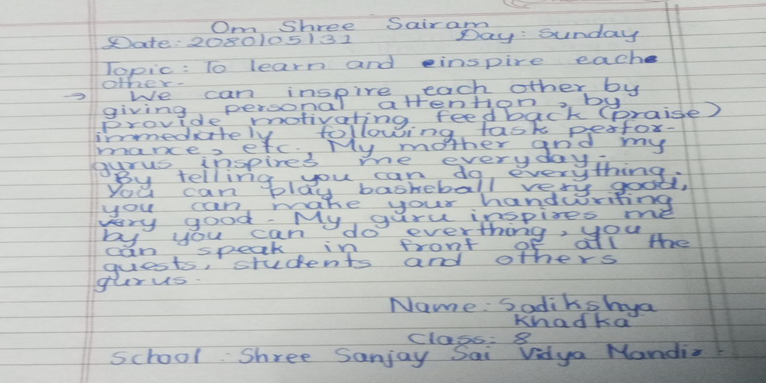 Om Shree Sairam
Date: 2080/05/31 Day: Sunday
Topic: To learn and inspire each
other.
→ We can inspire each other by
giving personal attention, by
provide motivating feedback (praise)
immediately following task perfor-
mance, etc. My mother and my
gurus inspires me everyday.
By telling you can do everything.
You can play baskeball very good,
you can make your handwriting
very good. My guru inspires me
by you can do everthing, you
can speak in front of all the
guests, students and others
gurus.
Name: Sadikshya
Khadka
Class: 8
School : Shree Sanjay Sai Vidya Mandir.